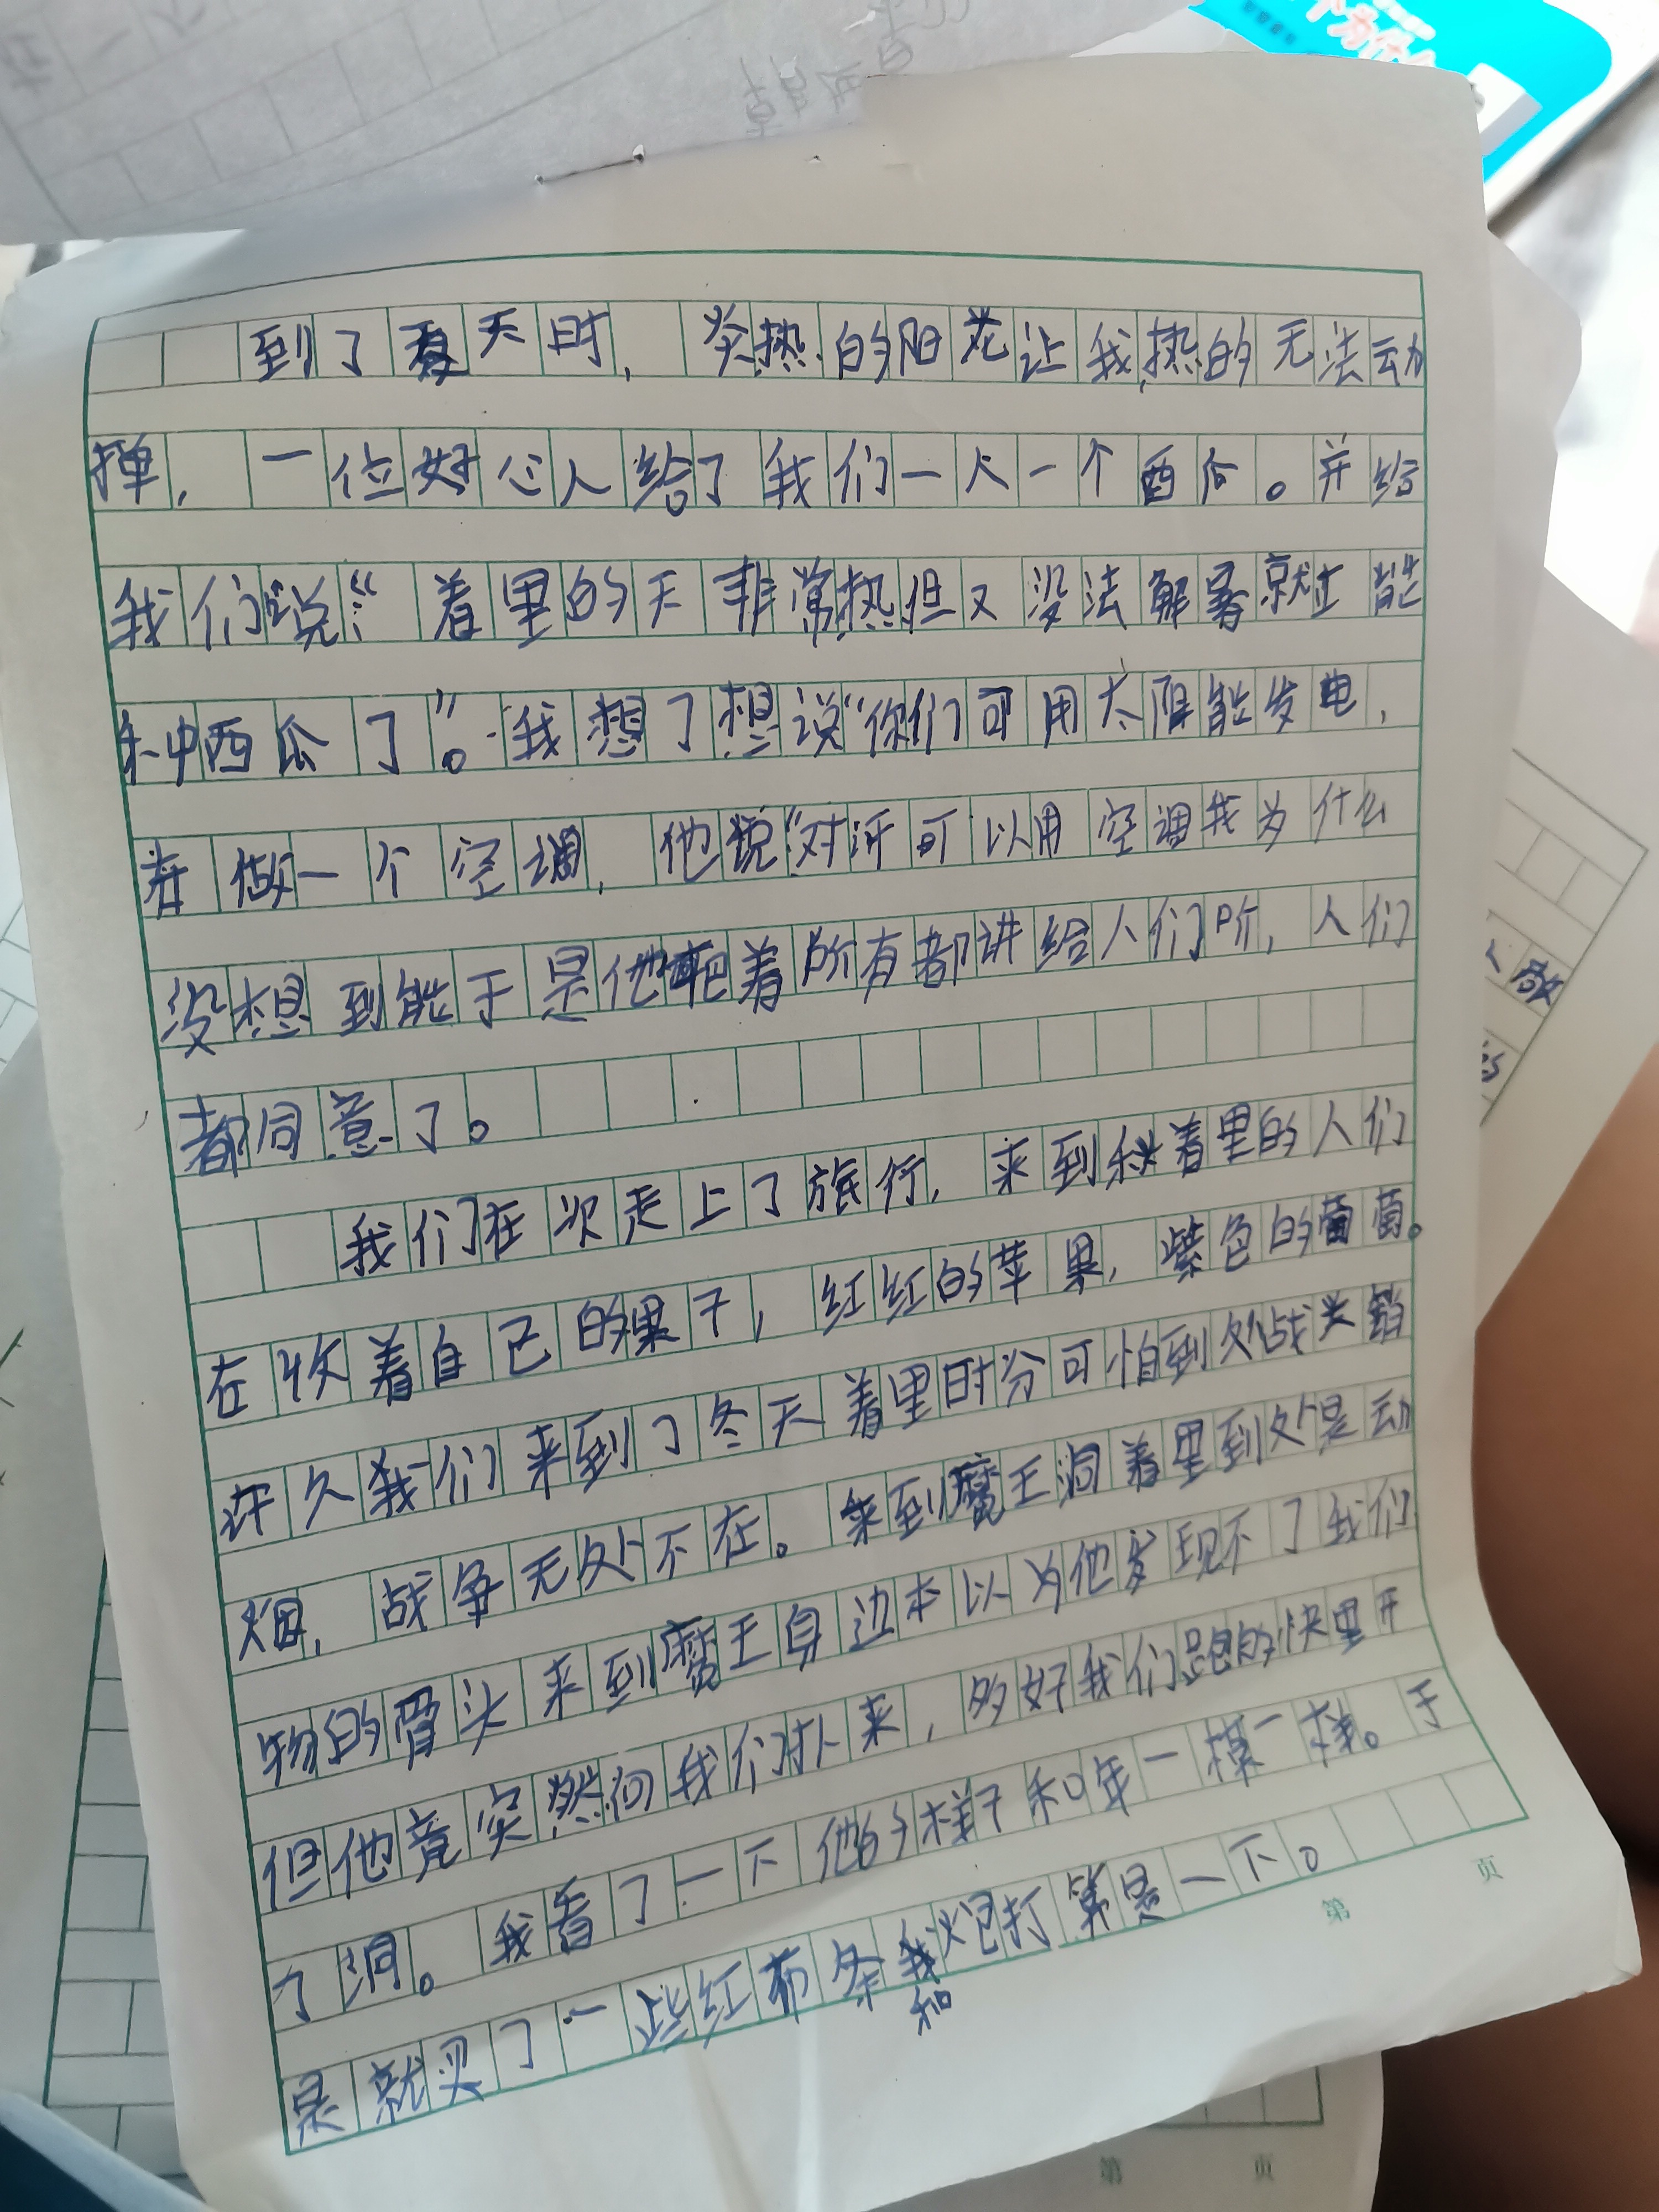 到了夏天时，炎热的阳花让我热的无法动
掸，一位好心人给了我们一人一个西瓜。并给
我们说：“着里的天非常热但又没法解暑就立能
种西瓜了”。我想了想说“你们可用太阳能发电，
在做一个空调，他说“对讶可以用空调我为什么
没想到能于是他把着所有都讲给人们听，人们
都同意了。
我们在次走上了旅行，来到秋着里的人们
在收着自己的果子，红红的苹果，紫色的葡萄。
许久我们来到了冬天着里时分可怕到处战火销
烟，战争无处不在。来到魔王洞着里到处是动
物的骨头来到魔王身边本以为他发现不了我们
但他竟突然向我们扑来，多好我们跑的快里开
了洞。我看了一下他的样子和年一模一样。于
是就买了一些红布条我和炮打算是一下。
第 页
第 页